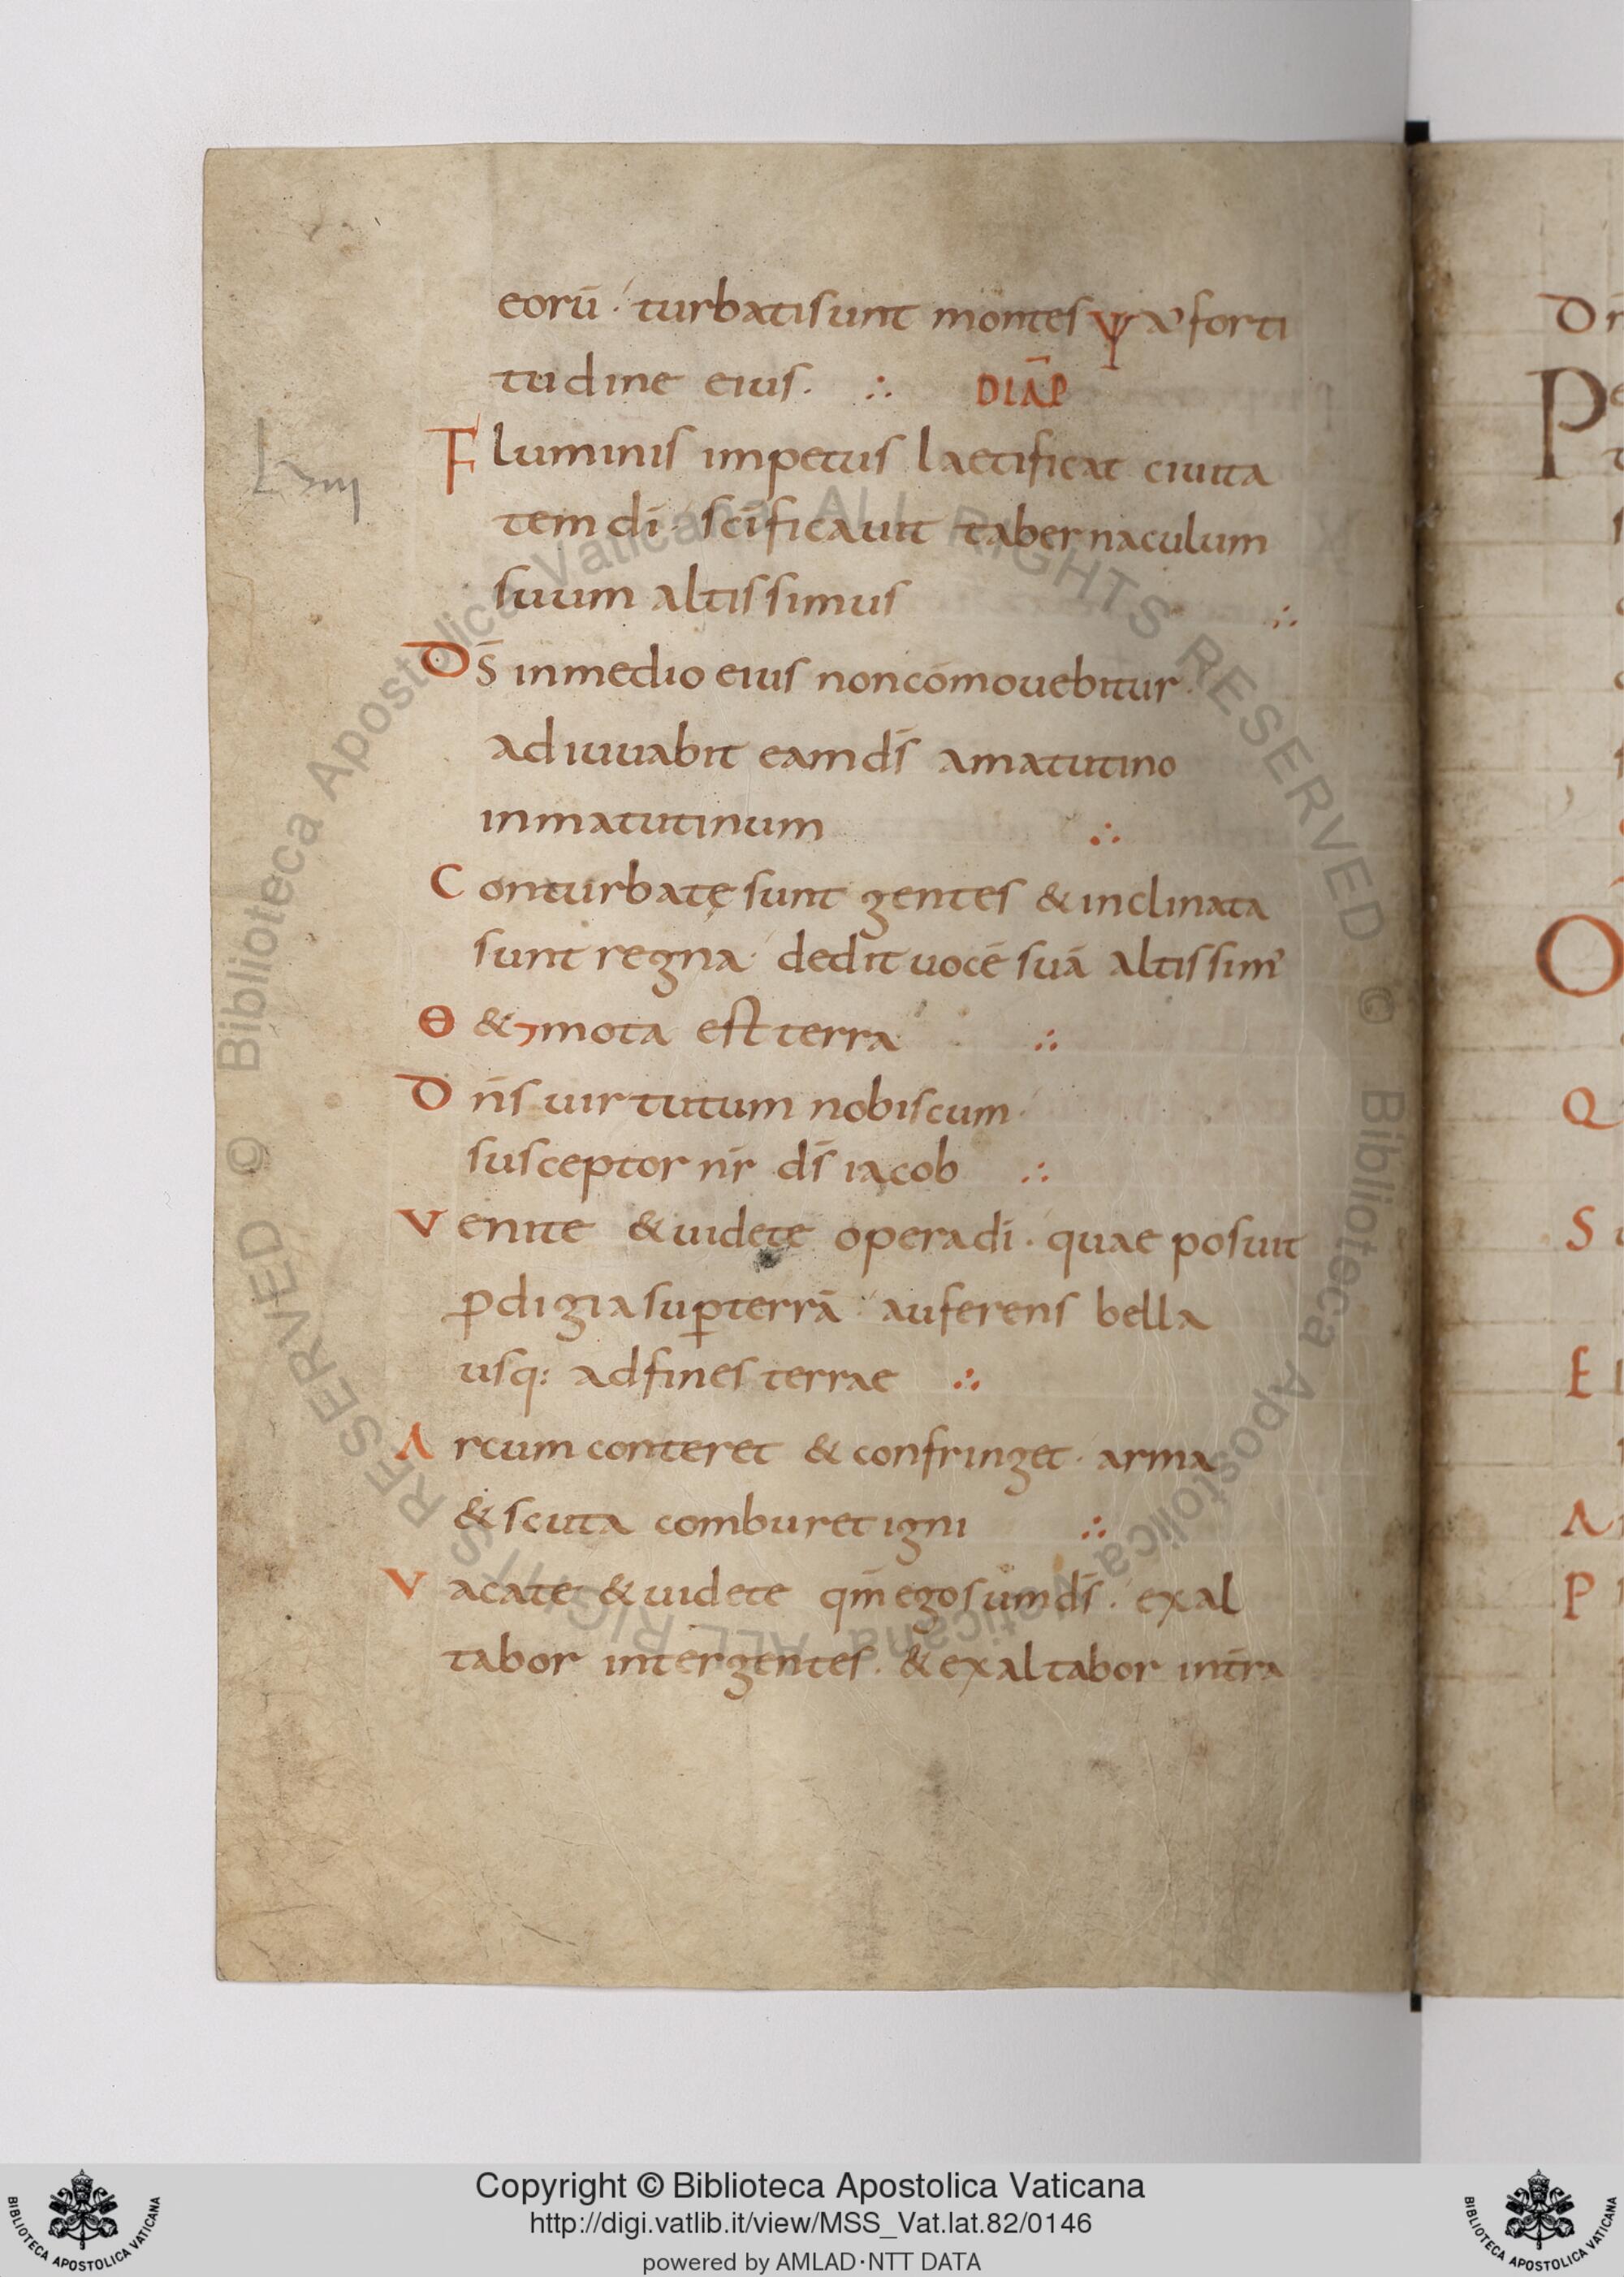 eorū · turbatisunt montes ψ a᷒ forti
tudine eius. ∴ DIAP̄
Fluminis impetus laetificat ciuita
tem dī · scīficauit tabernaculum
suum altissimus ∴
Ds̄ inmedio eius noncōmouebitur ·
adiuuabit eamds̄ amatutino
inmatutinum ∴
Conturbatę sunt gentes & inclinata
sunt regna · dedit uocē suā altissim᾿
Ɵ &⁊mota est terra ∴
Dn̄s uirtutum nobiscum ·
susceptor nr̄ ds̄ iacob ∴
Venite & uidete operadī · quae posuit
ꝓdigiasuꝑterrā · auferens bella
usq: adfines terrae ∴
Arcum conteret & confringet · arma
& scuta comburet igni ∴
Vacate & uidete qm̄ egosumds̄ · exal
tabor intergentes · & exaltabor int̄ra
Biblioteca Apostolica Vaticana ALL RIGHTS RESERVED ©
Biblioteca Apostolica Vaticana ALL RIGHTS RESERVED ©
Copyright © Biblioteca Apostolica Vaticana
http://digi.vatlib.it/view/MSS_Vat.lat.82/0146
powered by AMLAD·NTT DATA
BIBLIOTECA APOSTOLICA VATICANA
BIBLIOTECA APOSTOLICA VATICANA